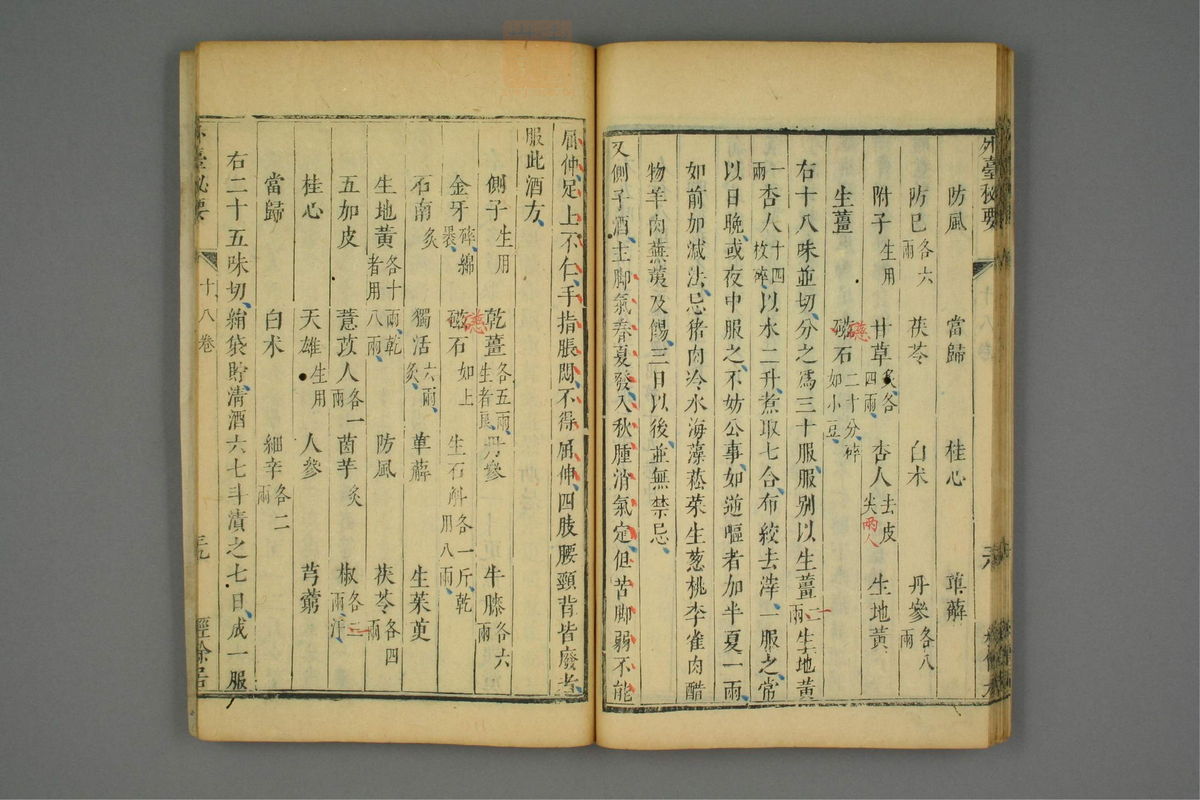 防風 當歸 桂心 萆薢
防巳各六兩 茯苓 白朮 丹參各八兩
附子生用 甘草炙各四兩 杏人去皮尖兩人 生地黃
生薑 磁石二十分碎如小豆
右十八味並切分之爲三十服服別以生薑二兩生地黃
一兩杏人十四枚碎以水二升煮取七合布絞去滓一服之常
以日晚或夜中服之不妨公事如逆嘔者加半夏一兩
如前加減法忌猪肉冷水海藻菘菜生葱桃李雀肉醋
物羊肉蕪荑及餳三日以後並無禁忌
又側子酒主脚氣春夏發入秋腫消氣定但苦脚弱不能
外臺秘要 十八卷
屈伸足上不仁手指脹悶不得屈伸四肢腰頸背皆廢者
服此酒方
側子生用 乾薑各五兩生者良 丹參 牛膝各六兩
金牙碎綿裹 磁石如上 生石斛各一斤乾用八兩
石南炙 獨活六兩炙 萆薢 生茱萸
生地黃各十兩乾者用八兩 防風 茯苓各四兩
五加皮 薏苡人各一兩 茵芋炙 椒各二兩汗
桂心 天雄生用 人參 芎藭
當歸 白朮 細辛各二兩
右二十五味切絹袋貯清酒六七斗漬之七日成一服
外臺秘要 十八卷 三九 經餘居